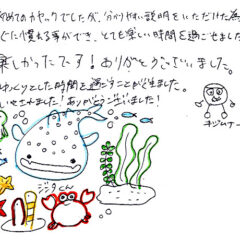 初めてのカヤックでしたが、分かりやすい説明をいただけた為
すぐに慣れる事ができ、とても楽しい時間を過ごせました
楽しかったです！ありがとうございました。
ゆっくりとした時間を過ごすことが出来ました。
いせされました！ありがとうございました！
キジムナー
ジンタくん